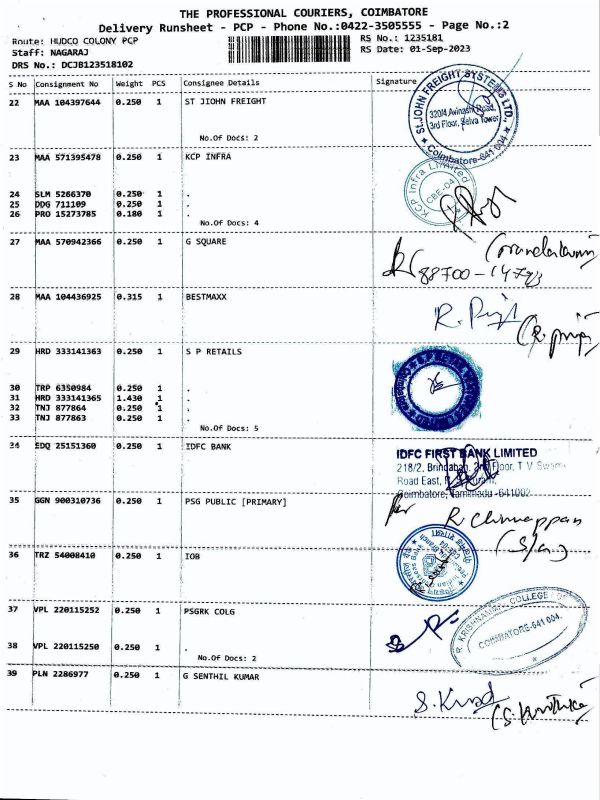 THE PROFESSIONAL COURIERS, COIMBATORE
Delivery Runsheet - PCP - Phone No.:0422-3505555 - Page No.:2
Route: HUDCO COLONY PCP
RS No.: 1235181
Staff: NAGARAJ
RS Date: 01-Sep-2023
DRS No.: DCJB123518102
S No Consignment No Weight PCS Consignee Details Signature
22 MAA 104397644 0.250 1 ST JIOHN FREIGHT
No.Of Docs: 2
St.JOHN FREIGHT SYSTEMS LTD.,
320/4,Avinashi Road,
3rd Floor, Selva Tower
Coimbatore-641 004.
23 MAA 571395478 0.250 1 KCP INFRA
KCP Infra Limited
CBE-04
24 SLM 5266370 0.250 1 .
25 DDG 711109 0.250 1 .
26 PRO 15273785 0.180 1 .
No.Of Docs: 4
27 MAA 570942366 0.250 1 G SQUARE
28 MAA 104436925 0.315 1 BESTMAXX
29 HRD 333141363 0.250 1 S P RETAILS
30 TRP 6350984 0.250 1 .
31 HRD 333141365 1.430 1 .
32 TNJ 877864 0.250 1 .
33 TNJ 877863 0.250 1 .
No.Of Docs: 5
34 EDQ 25151360 0.250 1 IDFC BANK
IDFC FIRST BANK LIMITED
218/2, Brindaban, 2nd Floor, T V Swamy
Road East, R. S. Puram,
Coimbatore, Tammadu -641002
35 GGN 900310736 0.250 1 PSG PUBLIC [PRIMARY]
R Chinnappan
36 TRZ 54008410 0.250 1 IOB
37 VPL 220115252 0.250 1 PSGRK COLG
COIMBATORE-641 004.
38 VPL 220115250 0.250 1 .
No.Of Docs: 2
39 PLN 2286977 0.250 1 G SENTHIL KUMAR